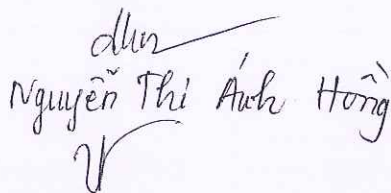 Nguyễn Thi Ánh Hồng